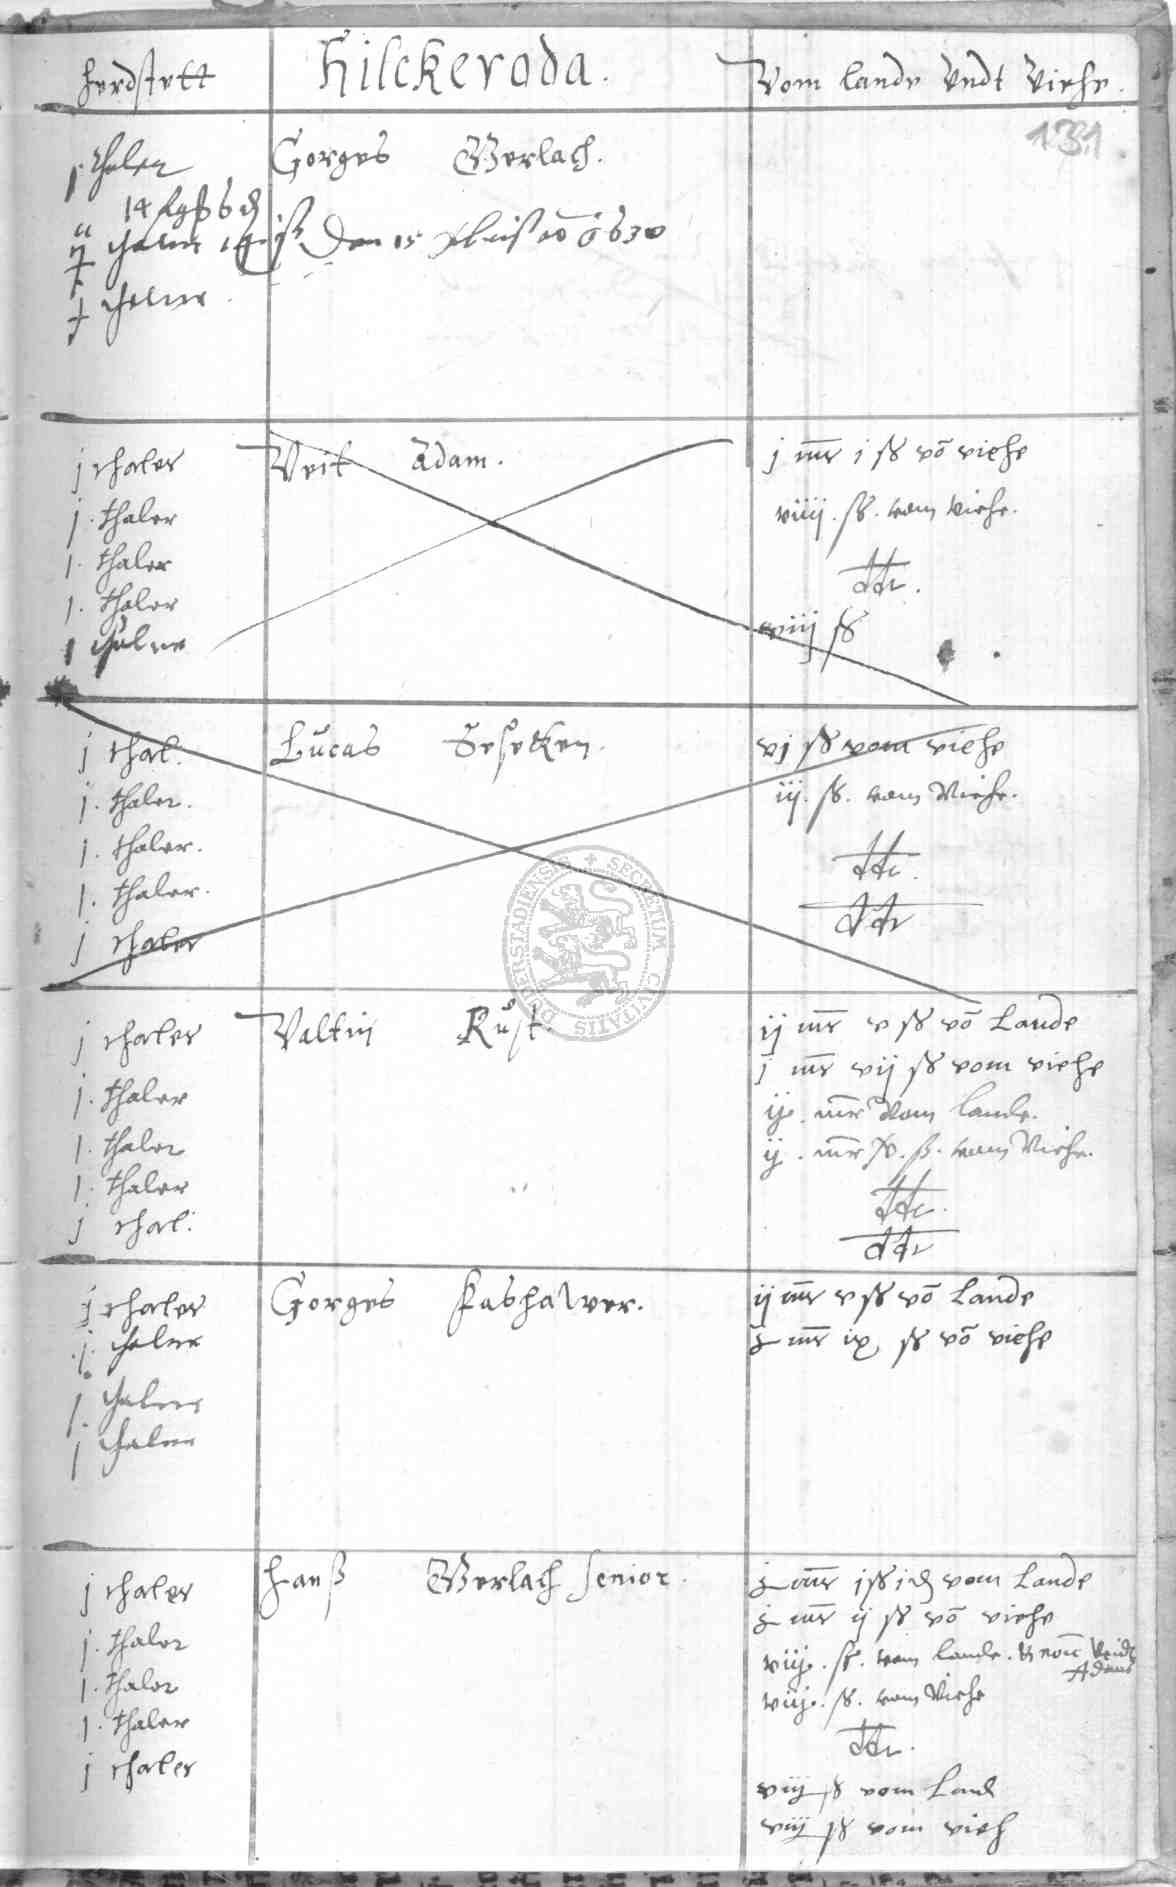 herdstett Hilckeroda. Vom lande Undt Viehe.
131
j thaler Gorges Gerlach.
thaler
thaler
j thaler Veit Adam. j mr i ß vo viehe
j. thaler viiij. ß. vom Viehe.
j. thaler dtr.
j. thaler viij ß
j thaler
j thal. Lucas Geseken. vj ß vom viehe
j. thaler. iij. ß. vom Viehe.
j. thaler. dtr.
j. thaler. dtr
j thaler
j thaler Valtin Rust. ij mr v ß vo Lande
j. thaler j mr vij ß vom viehe
j. thaler ij. mr Vom lande.
j. thaler ij. mr ß. vom Viehe.
j thal: dtr.
dtr
j thaler Gorges ij mr v ß vo Lande
j. thaler mr ix ß vo viehe
j. thaler
j thaler
j thaler Hanß Gerlach senior. mr j ß j d vom Lande
j. thaler mr ij ß vo viehe
j. thaler viij. ß. vom lande. Veidt Adams
j. thaler viij. ß. vom Viehe
j thaler dtr.
viij ß vom Land
viij ß vom vieh
SECRETUM CIVITATIS DUDERSTADIENSIS